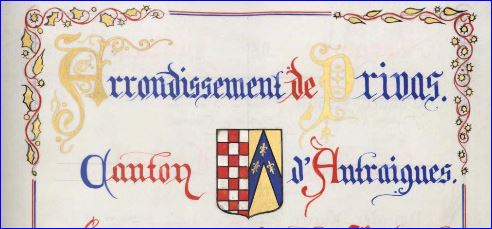 Arrondissement de Privas.
Canton d'Antraigues.